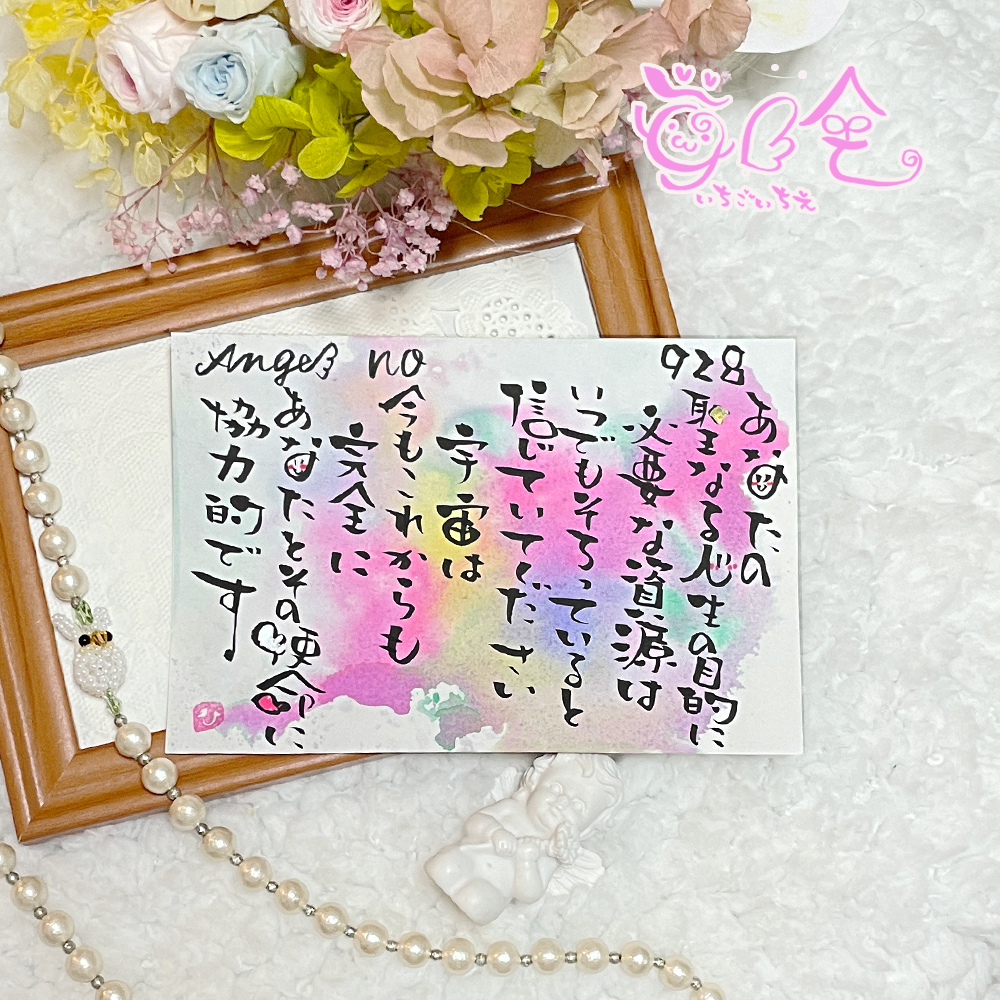 いちごいちえ
Angel no 928
あなたの
聖なる人生の目的に
必要な資源は
いつでもそろっていると
信じていてください
宇宙は
今もこれからも
完全に
あなたとその使命に
協力的です